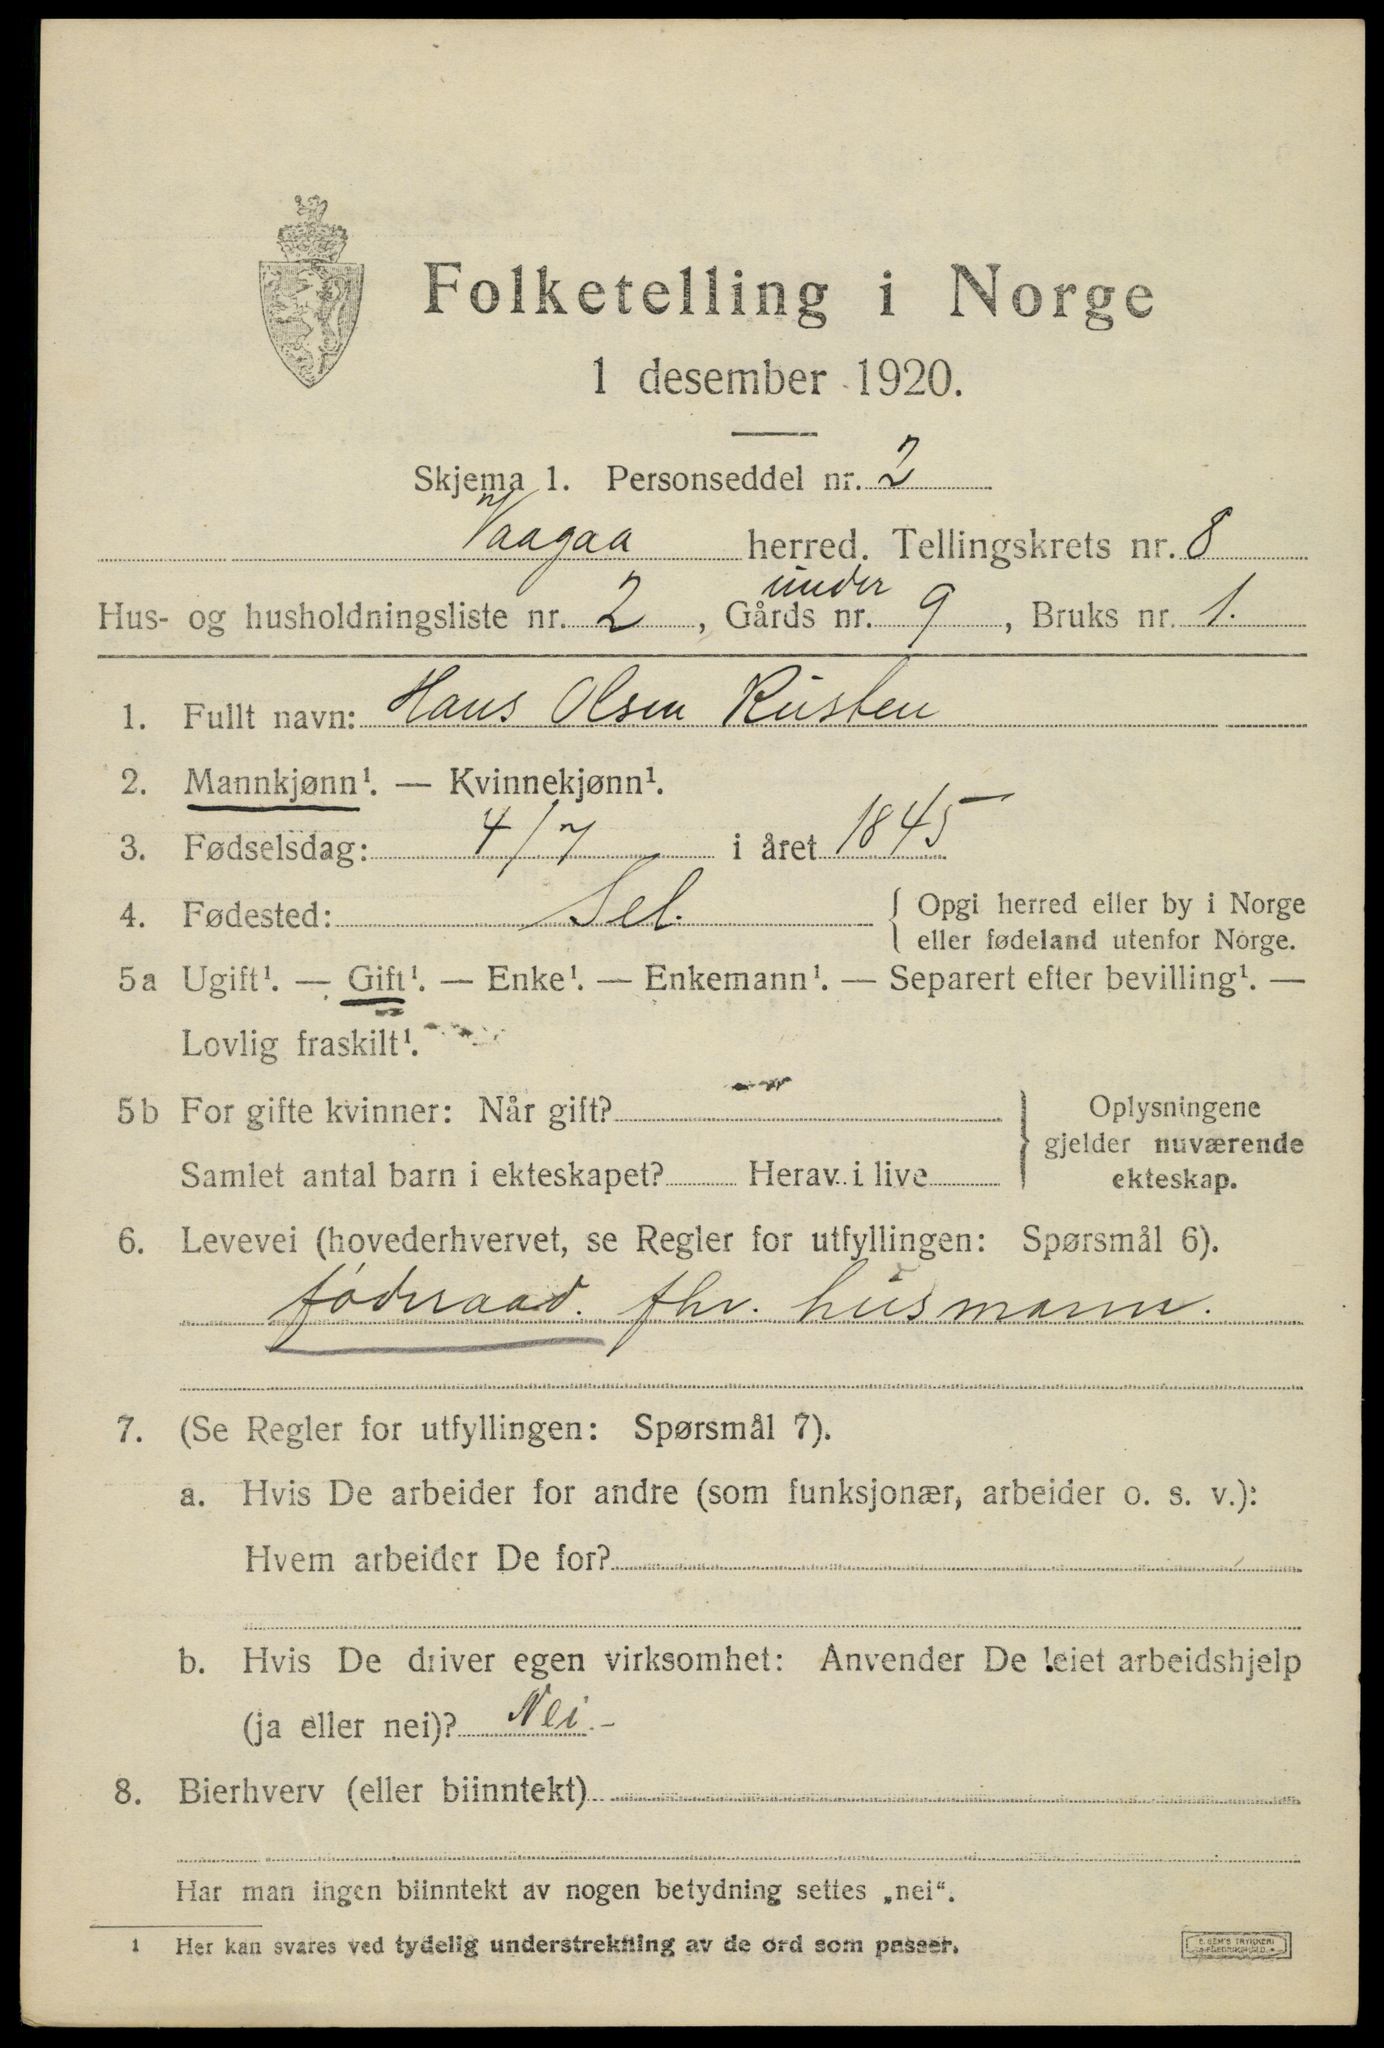 Folketelling i Norge
1 desember 1920.
Skjema 1. Personseddel nr. 2
Vaagaa herred. Tellingskrets nr. 8
under
Hus- og husholdningsliste nr. 2, Gårds nr. 9, Bruks nr. 1.
1. Fullt navn: Hans Olsen Rusten
2. Mannkjønn¹. — Kvinnekjønn¹.
3. Fødselsdag: 4/7 i året 1845
4. Fødested: Sel. { Opgi herred eller by i Norge
eller fødeland utenfor Norge.
5a Ugift¹. — Gift¹. — Enke¹. — Enkemann¹. — Separert efter bevilling¹. —
Lovlig fraskilt¹.
5b For gifte kvinner: Når gift?
Samlet antal barn i ekteskapet? Herav i live
Oplysningene
gjelder nuværende
ekteskap.
6. Levevei (hovederhvervet, se Regler for utfyllingen: Spørsmål 6).
føderaad. fhv. husmann.
7. (Se Regler for utfyllingen: Spørsmål 7).
a. Hvis De arbeider for andre (som funksjonær, arbeider o. s. v.):
Hvem arbeider De for?
b. Hvis De driver egen virksomhet: Anvender De leiet arbeidshjelp
(ja eller nei)? Nei.-
8. Bierhverv (eller biinntekt)
Har man ingen biinntekt av nogen betydning settes „nei“.
1 Her kan svares ved tydelig understrekning av de ord som passer.